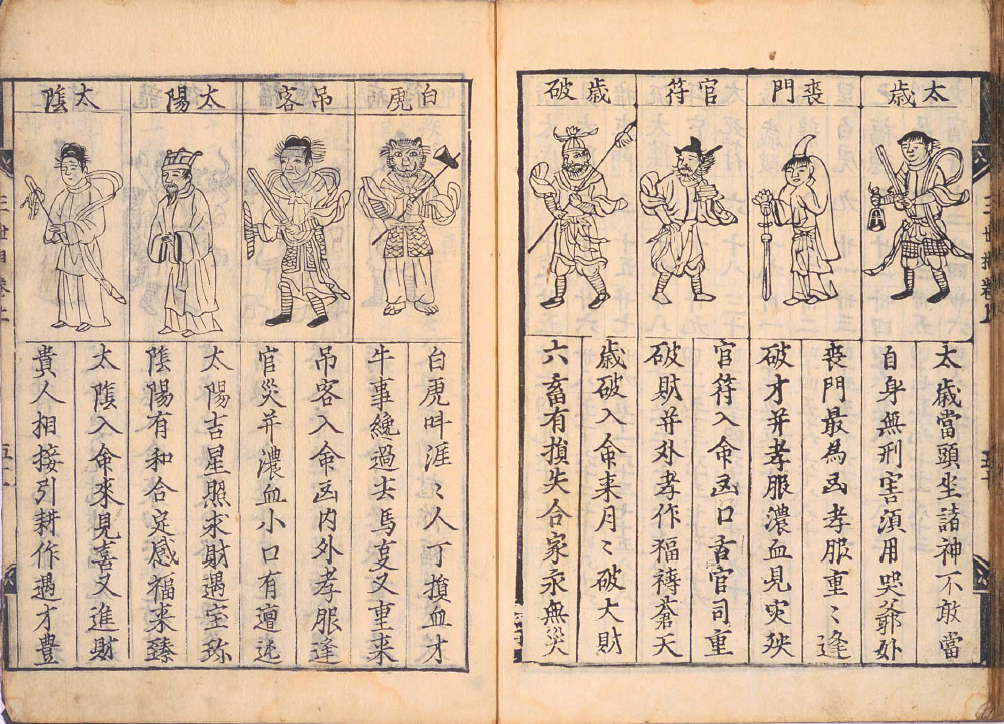 太歲
喪門
官符
歲破
太歲當頭坐諸神不敢當
自身無刑害須用哭爺娘
喪門最為凶孝服重〻逢
破才并孝服濃血見灾殃
官符入命凶口舌官司重
破財并外孝作福禱蒼天
歲破入命来月〻破大財
六畜有損失合家永無灾
白虎
吊客
太陽
太隂
白虎呌涯〻人丁損血才
牛事纔過去馬夏又重来
吊客入命凶内外孝服逢
官灾并濃血小口有邅迍
太陽吉星照求財遇宝珎
隂陽有和合定感福来臻
太隂入命來見喜又進財
貴人相接引耕作遇才豊